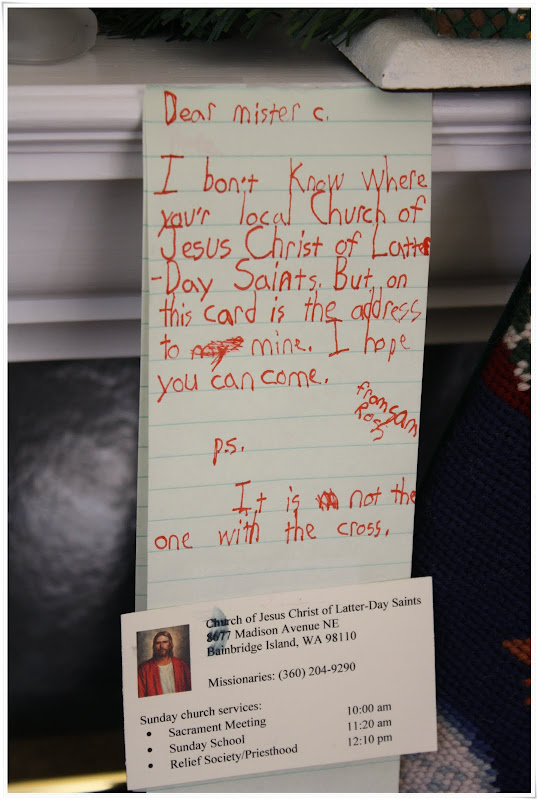 Dear mister c.
I bon't Know where
you'r local Church of
Jesus Christ of Latter
-Day Saints. But, on
this card is the address
to mine. I hope
you can come.
from Sam
Ross
p.s.
It is not the
one with the cross.
Church of Jesus Christ of Latter-Day Saints
8677 Madison Avenue NE
Bainbridge Island, WA 98110
Missionaries: (360) 204-9290
Sunday church services:
• Sacrament Meeting 10:00 am
• Sunday School 11:20 am
• Relief Society/Priesthood 12:10 pm